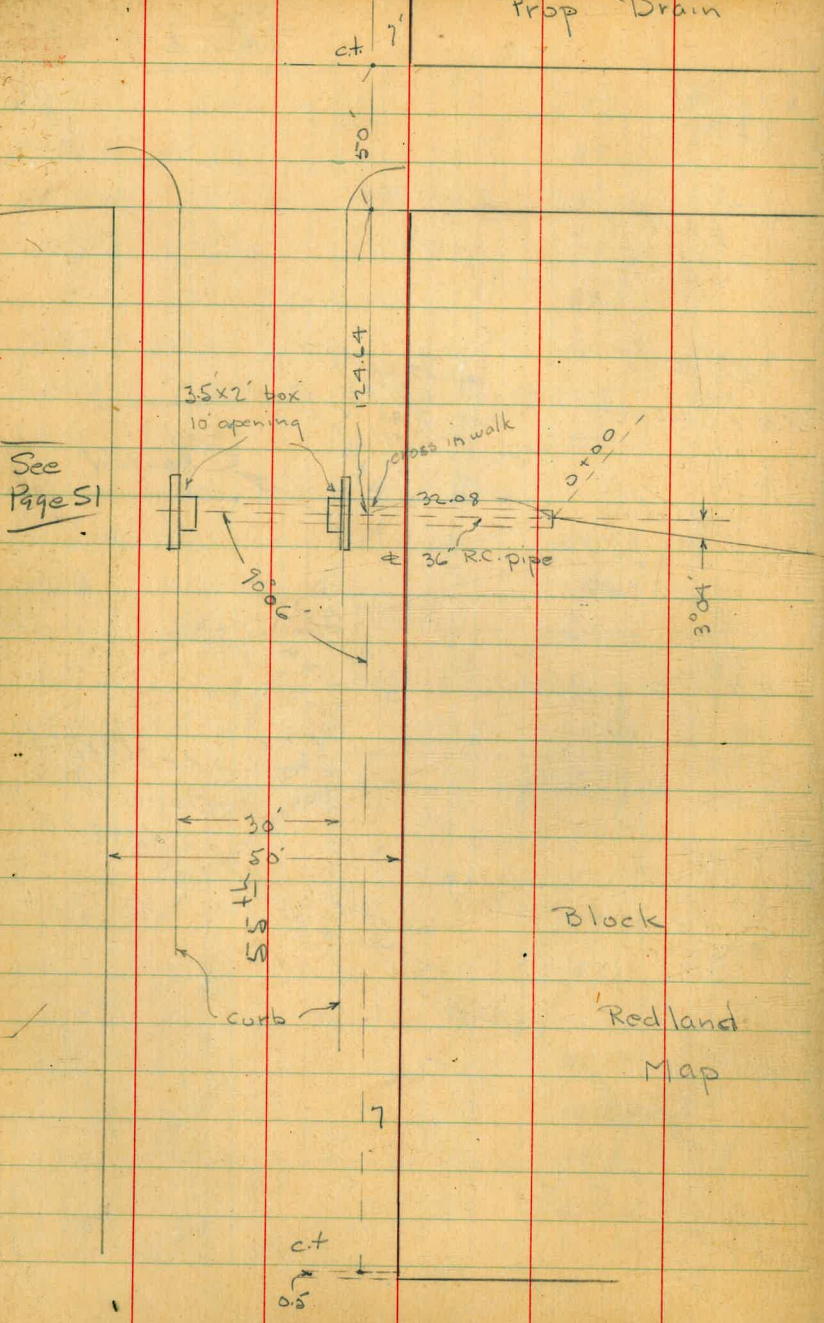 Prop Drain
c.t. 7'
50'
124.64
3.5'x2' box
10' opening
cross in walk
0+00
See
Page 51
32.08
℄ 36" R.C. pipe
90°06'
3°04'
30'
50'
55th
Block
curb
Redland
Map
7
c.t
0.5'